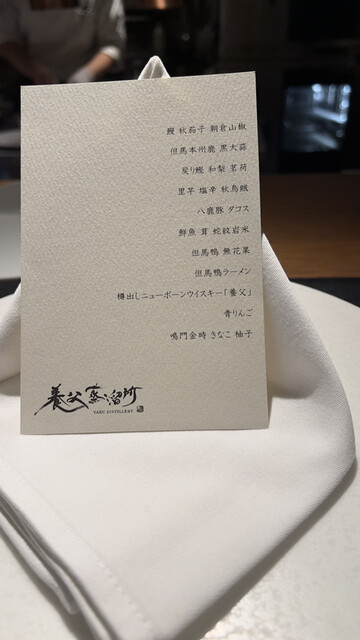 鰻 秋茄子 朝倉山椒
但馬本州鹿 黒大蒜
戻り鰹 和梨 茗荷
里芋 塩辛 秋鳥賊
八鹿豚 タコス
鮮魚 茸 蛇紋岩米
但馬鴨 無花果
但馬鴨ラーメン
樽出しニューボーンウイスキー「養父」
青りんご
鳴門金時 きなこ 柚子
養父蒸溜所
YABU DISTILLERY